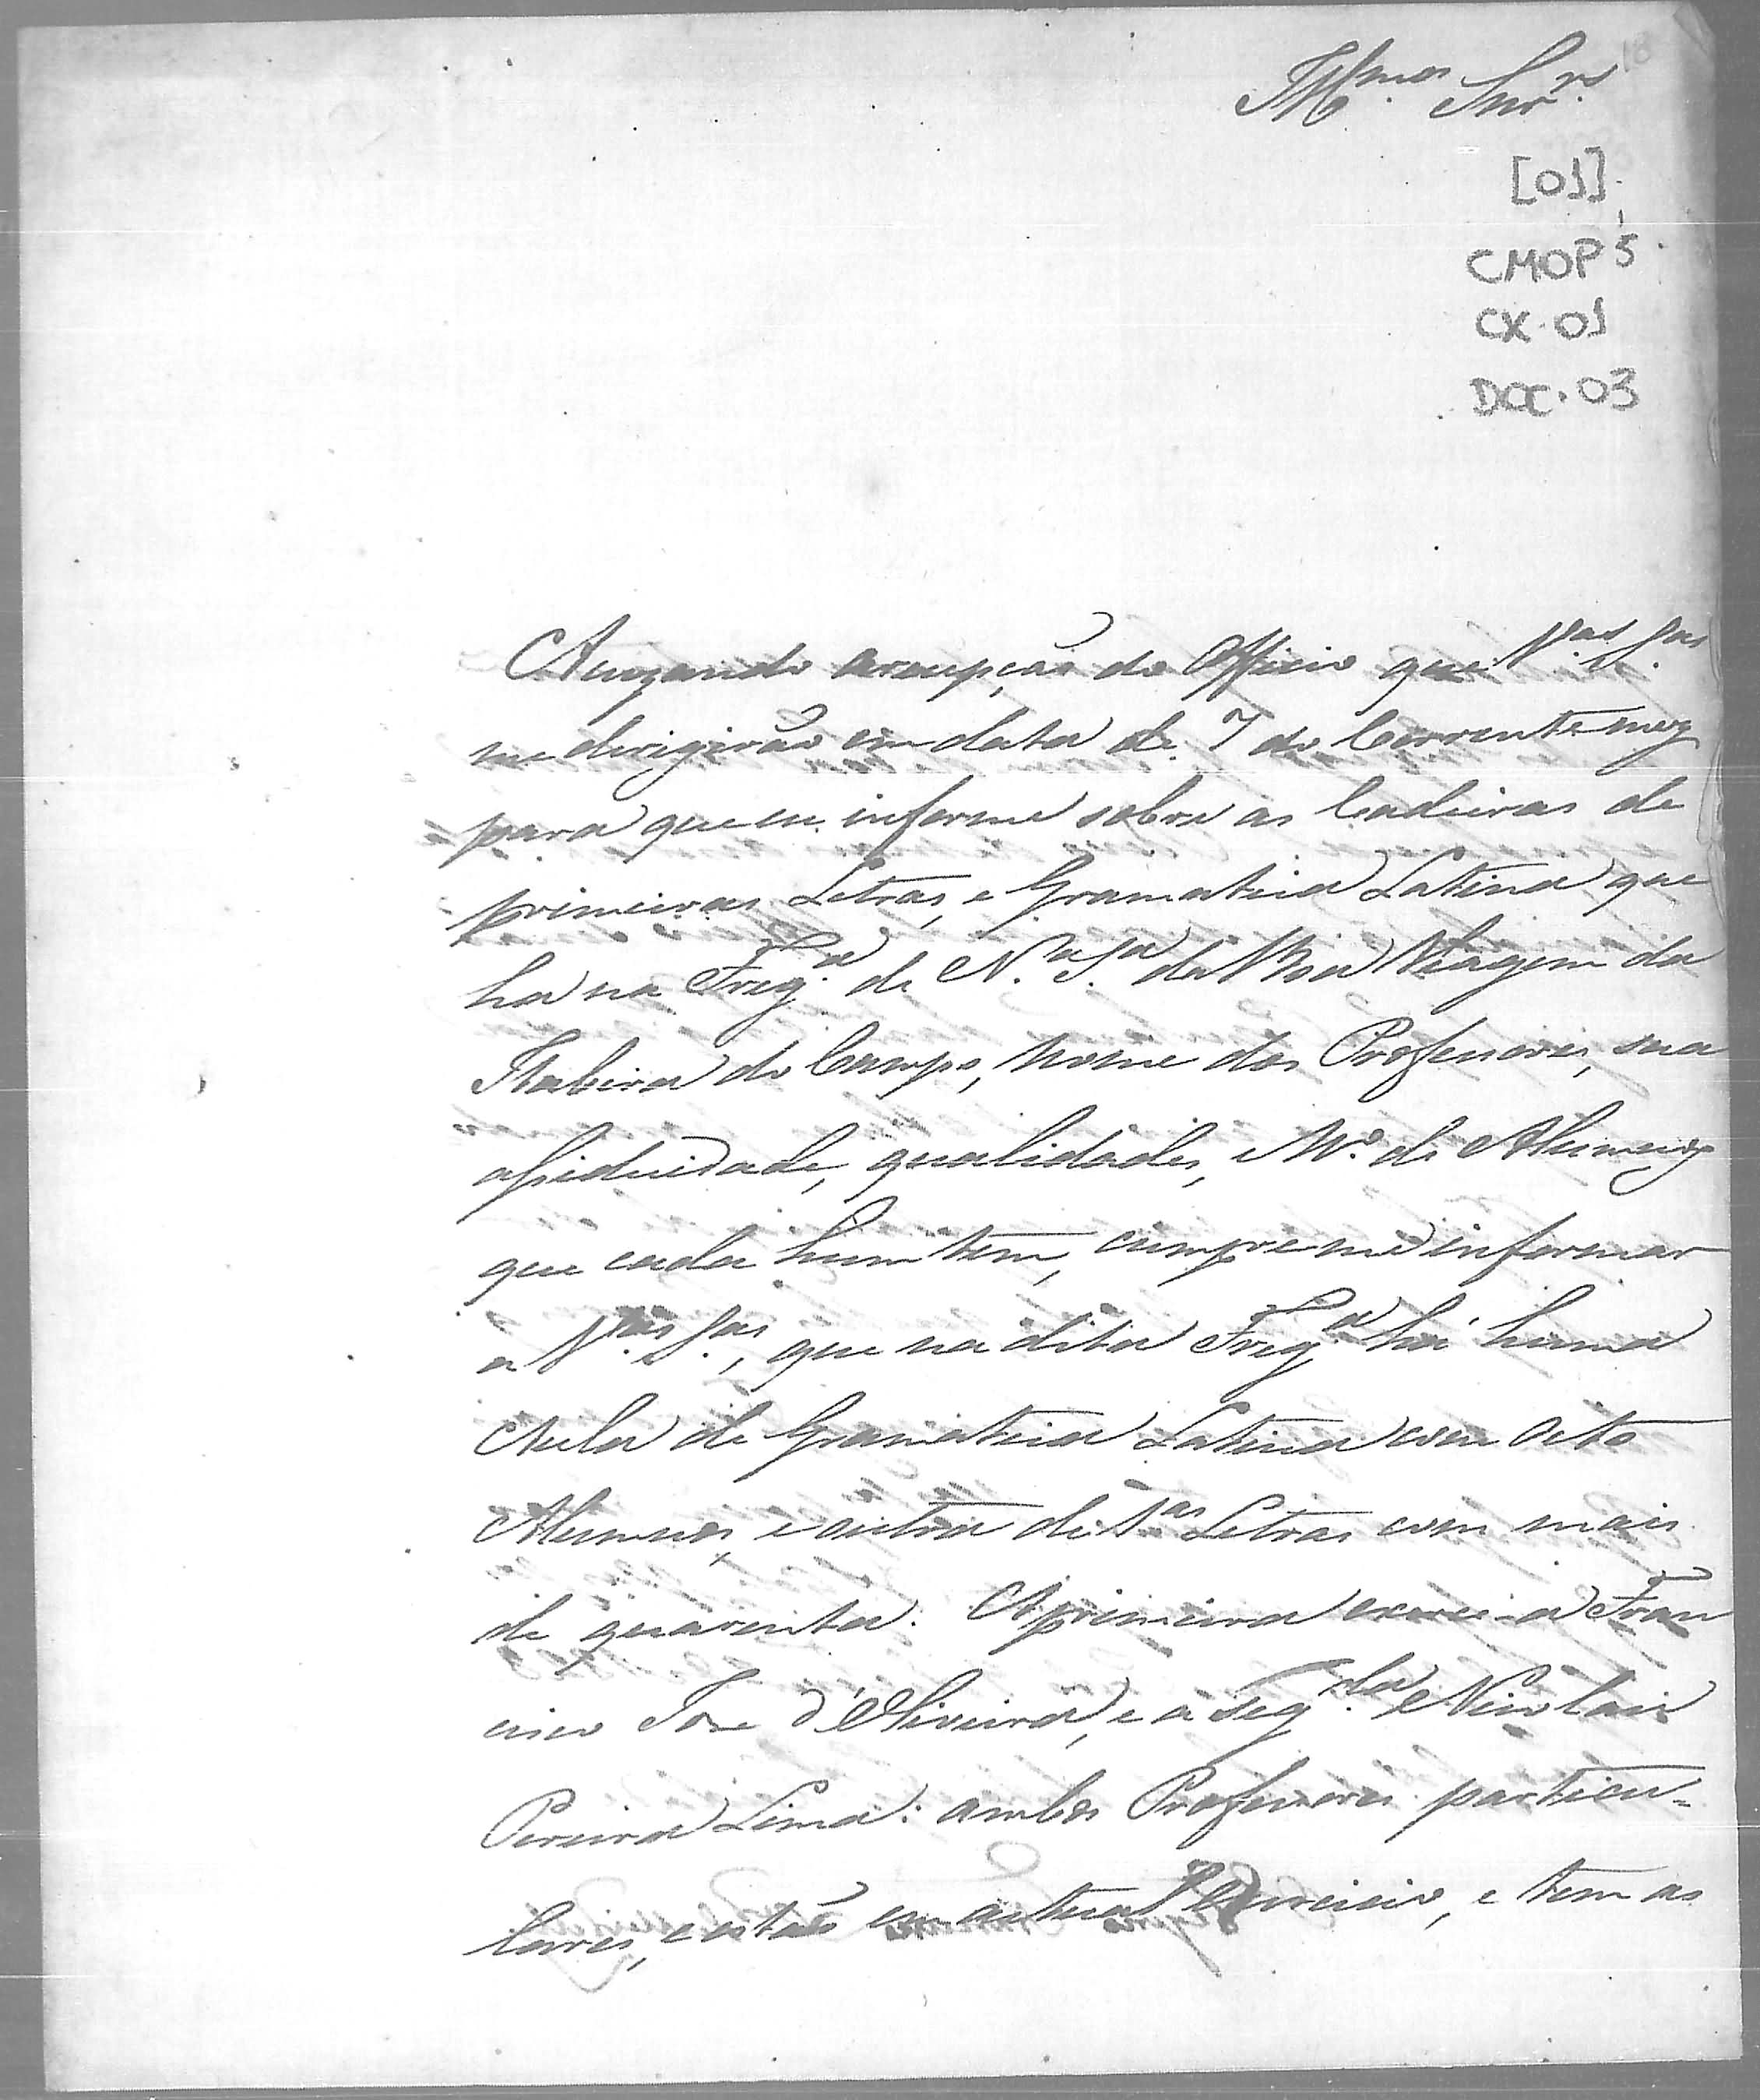 Illmos Snrs
18
[01]
CMOP 5
CX. 01
DOC. 03
Acuzando arecepção do Officio que V.as S.as
me dirigirão em data de 7 do Corrente mez
para que eu informe sobre as Cadeiras de
primeiras Letras, e Gramatica Latina que
ha na Freg.a de N.a S.a da Boa Viagem da
Itabira do Campo, nome dos Professores, sua
assiduidade, qualidades, e N.o de Alumnos
que cada hum tem, cumpre me informar
a V.as S.as, que na dita Freg.a há huma
Aula de Gramatica Latina com oito
Alumnos, e outra de 1.as Letras com mais
de quarenta. Aprimeira exerce-a Fran
cisco Jose d'Oliveira, e a Seg.da Nicolau
Pereira Lima: ambos Professores particu-
lares, e estão em actual Exercicio, e tem as